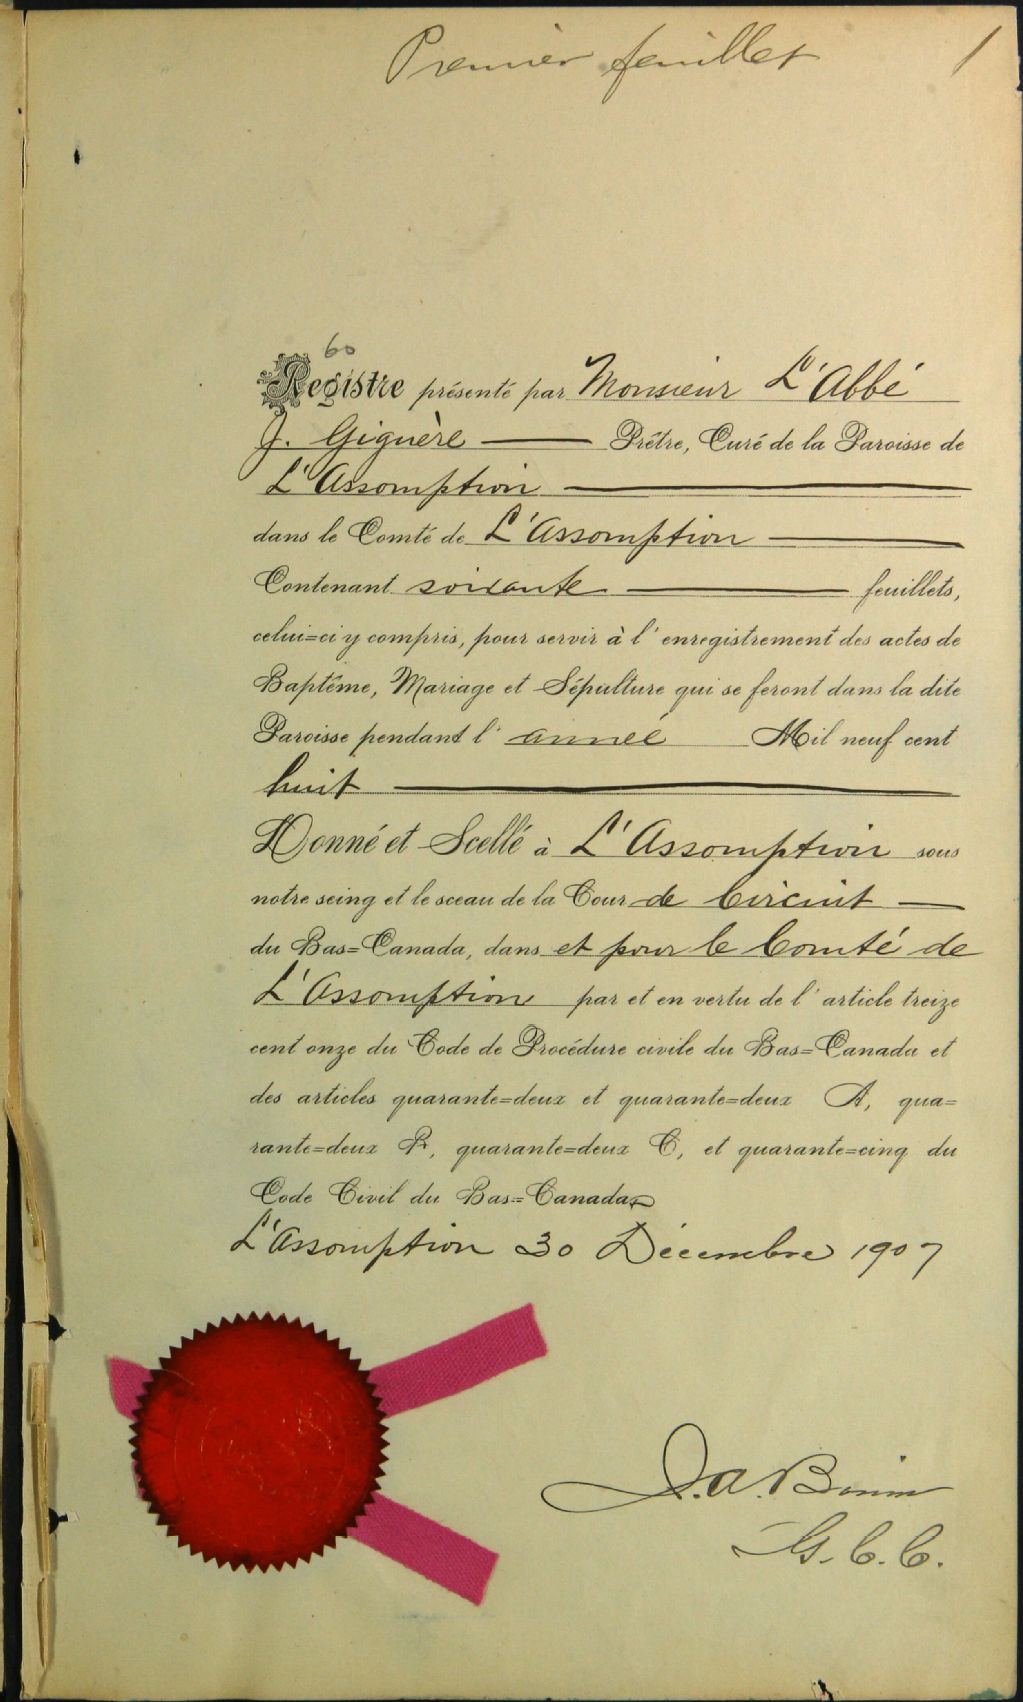 Premier feuillet 1
60
Registre présenté par Monsieur L'Abbé
J. Giguère Prêtre, Curé de la Paroisse de
L'Assomption
dans le Comté de L'Assomption
Contenant soixante feuillets,
celui=ci y compris, pour servir à l'enregistrement des actes de
Baptême, Mariage et Sépulture qui se feront dans la dite
Paroisse pendant l'année Mil neuf cent
huit
Donné et Scellé à L'Assomption sous
notre seing et le sceau de la Cour de Circuit
du Bas=Canada, dans et pour le Comté de
L'Assomption par et en vertu de l'article treize
cent onze du Code de Procédure civile du Bas=Canada et
des articles quarante=deux et quarante=deux A, qua=
rante=deux B, quarante=deux C, et quarante=cinq du
Code Civil du Bas=Canada
L'Assomption 30 Décembre 1907
J. A.
G. C. C.